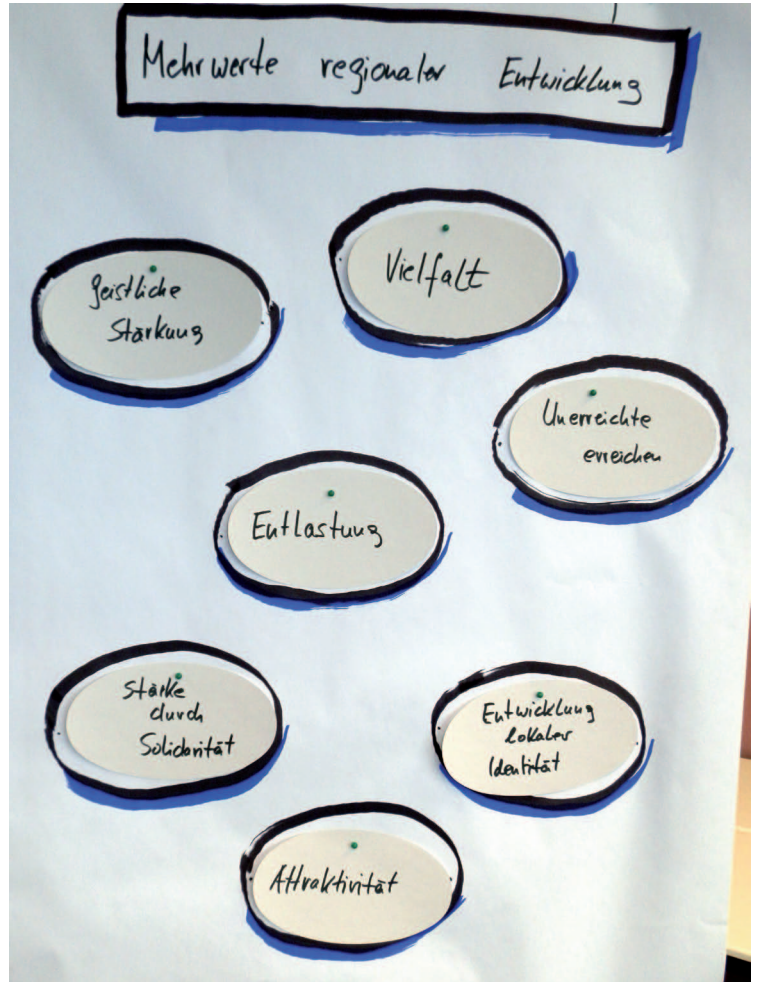 Mehrwerte regionaler Entwicklung
geistliche
Stärkung
Vielfalt
Unerreichte
erreichen
Entlastung
Stärke
durch
Solidarität
Entwicklung
lokaler
Identität
Attraktivität